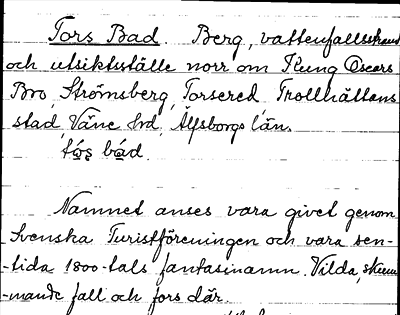 Tors Bad. Berg, vattenfallsskans
och utsiktsställe norr om Kung Oscars
Bro, Strömsberg, Torsered, Trollhättans
stad, Väne hrd, Älfsborgs län.
bad.
Namnet anses vara givet genom
Svenska Turistföreningen och vara sen-
-tida 1800-tals fantasinamn. Vilda, skum
-mande fall och fors där.